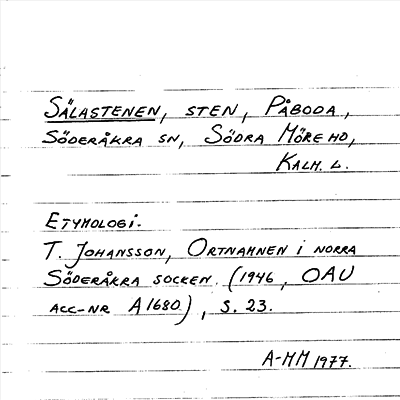 SÄLASTENEN, STEN, PÅBODA,
SÖDERÅKRA SN, SÖDRA MÖRE HD,
KALM. L.
ETYMOLOGI.
T. JOHANSSON, ORTNAMNEN I NORRA
SÖDERÅKRA SOCKEN. (1946, OAU
ACC-NR A1680), S. 23.
A-MM 1977.